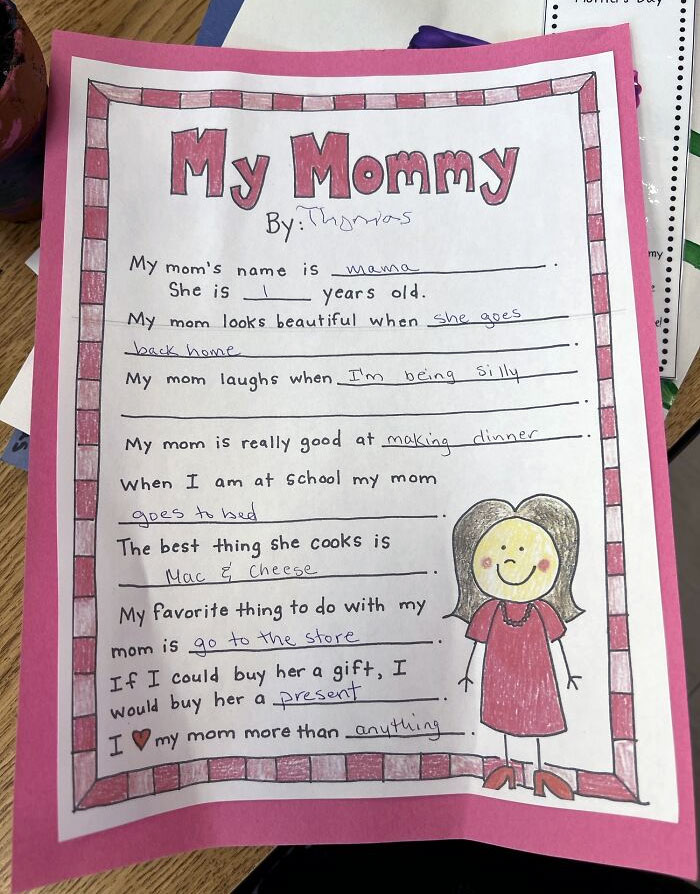 Mother's Day
My Mommy
By: Thomas
My mom's name is mama.
She is 1 years old.
My mom looks beautiful when she goes
back home.
My mom laughs when I'm being silly
.
My mom is really good at making dinner.
When I am at school my mom
goes to bed.
The best thing she cooks is
Mac & cheese.
My favorite thing to do with my
mom is go to the store.
If I could buy her a gift, I
would buy her a present.
I ❤ my mom more than anything.
my